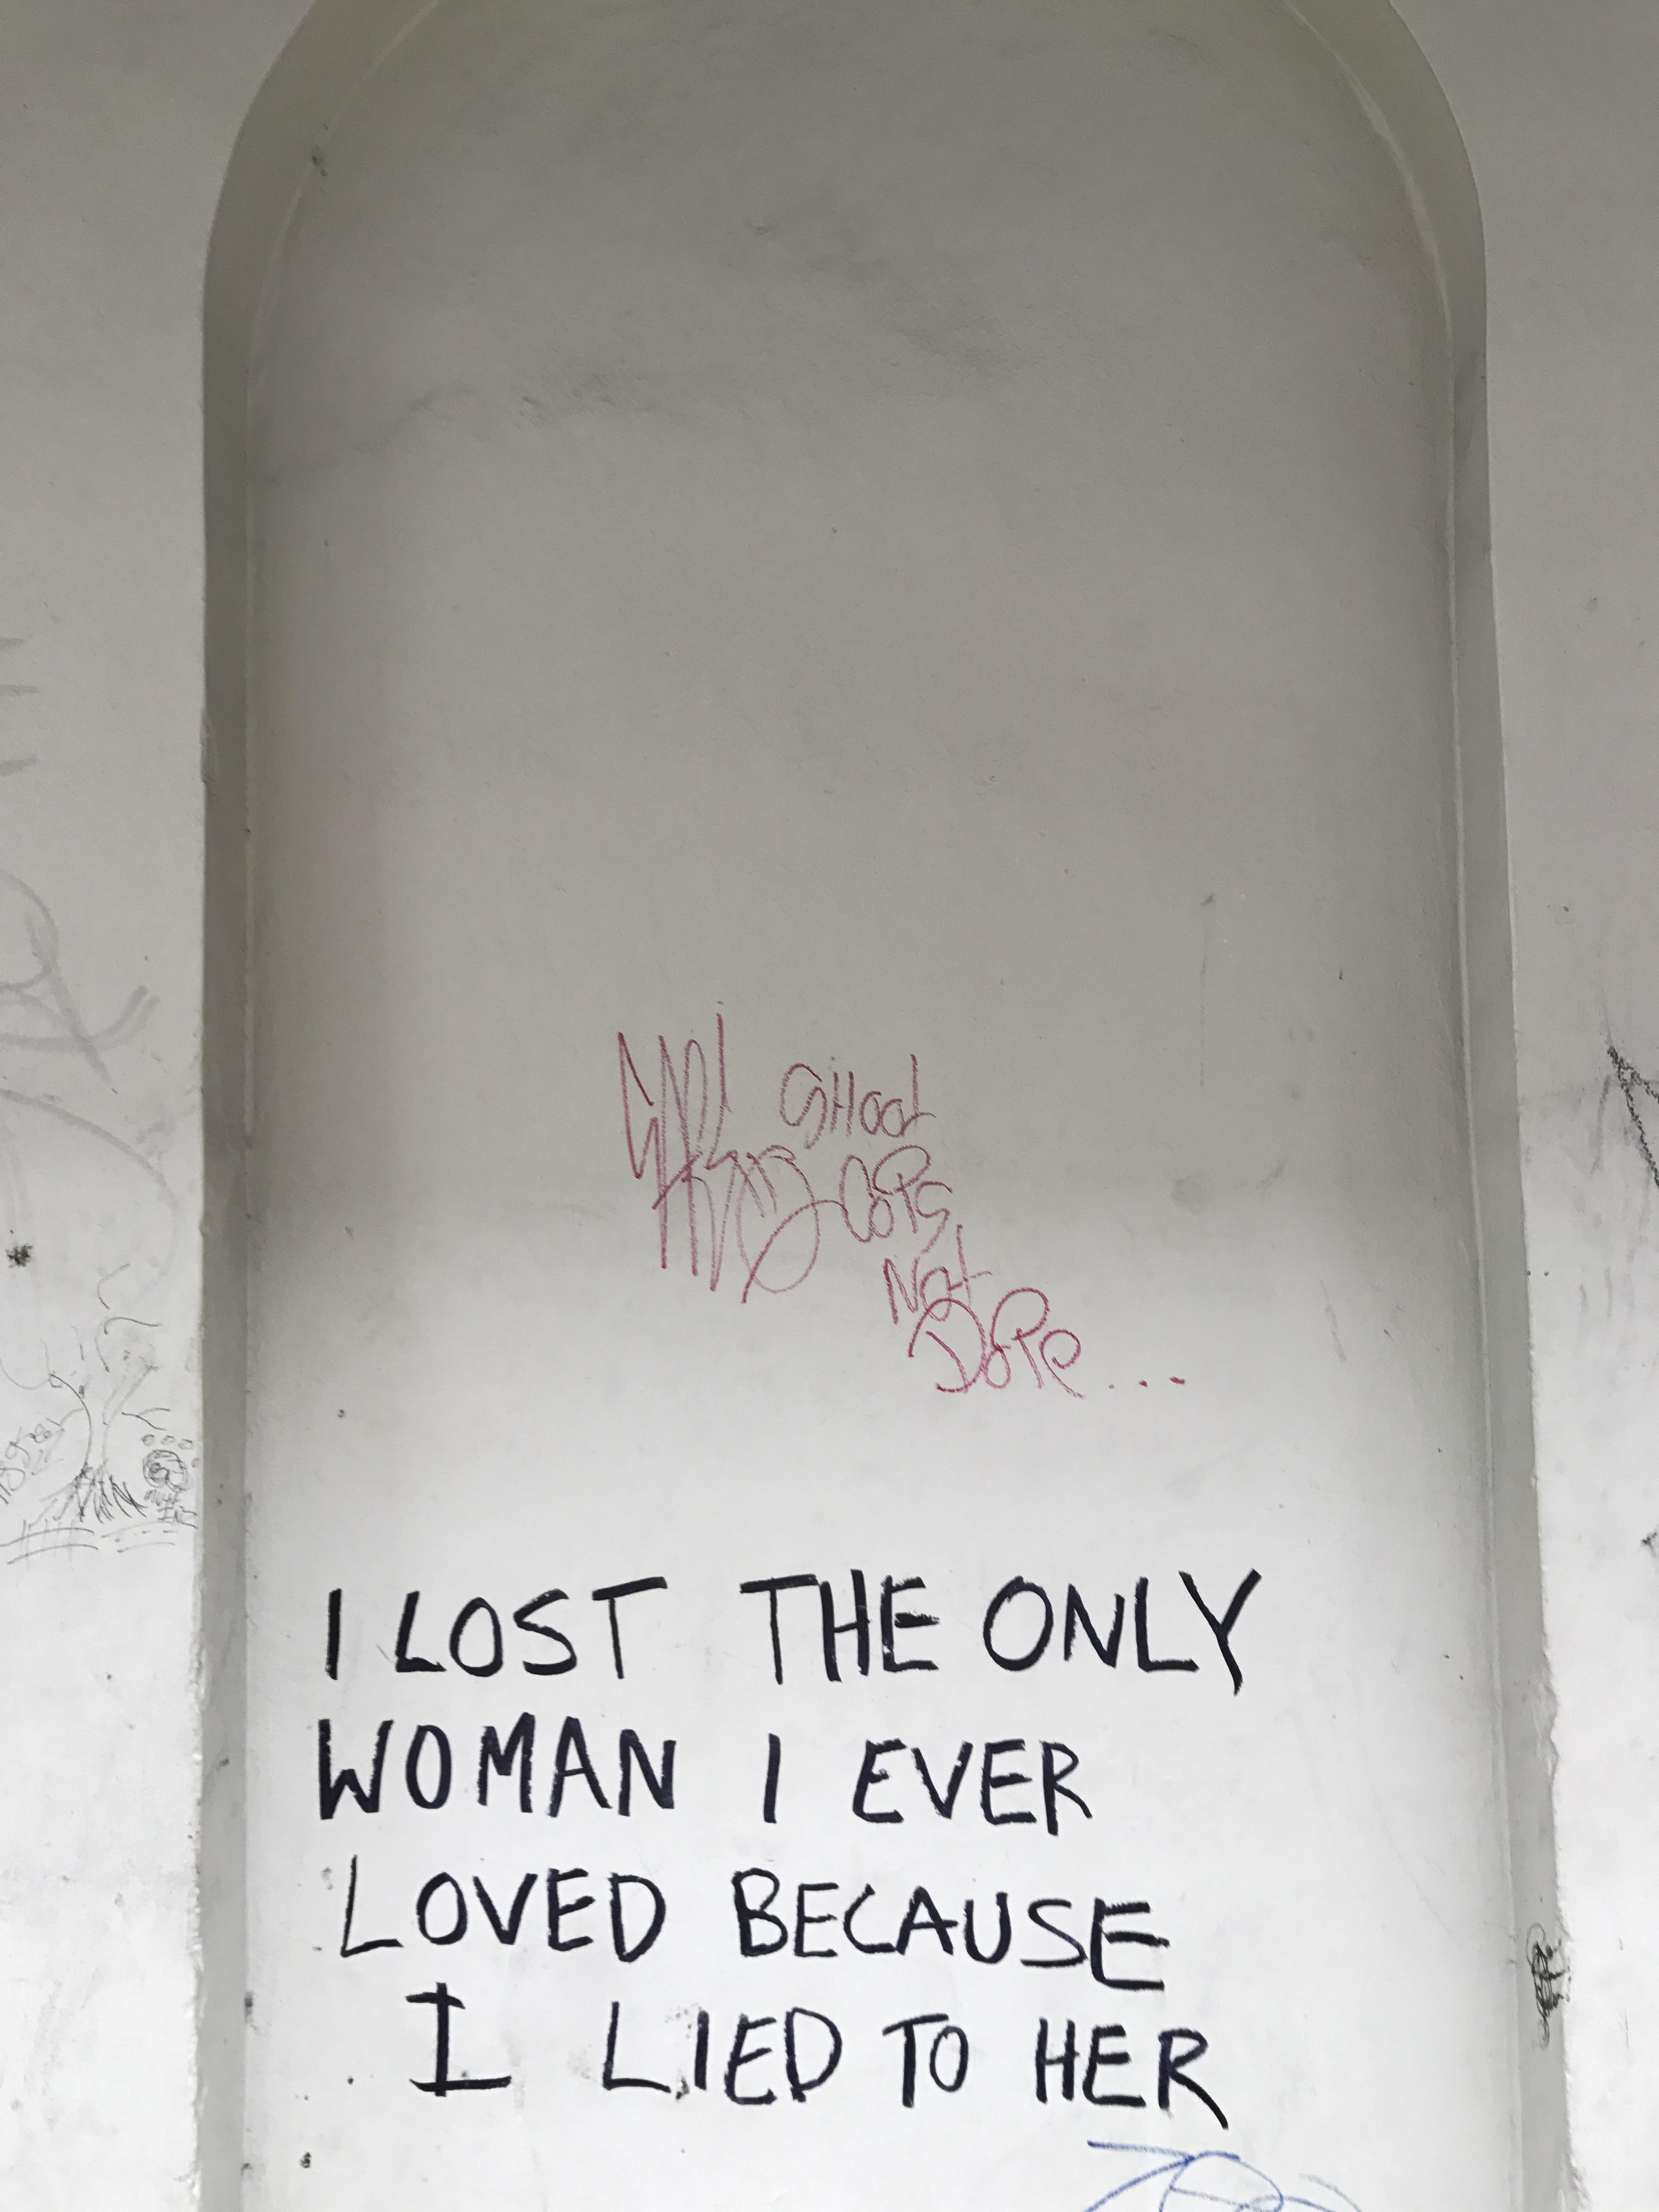 SHoot
CoPs,
Not
DoPe...
I LOST THE ONLY
WOMAN I EVER
LOVED BECAUSE
I LIED TO HER